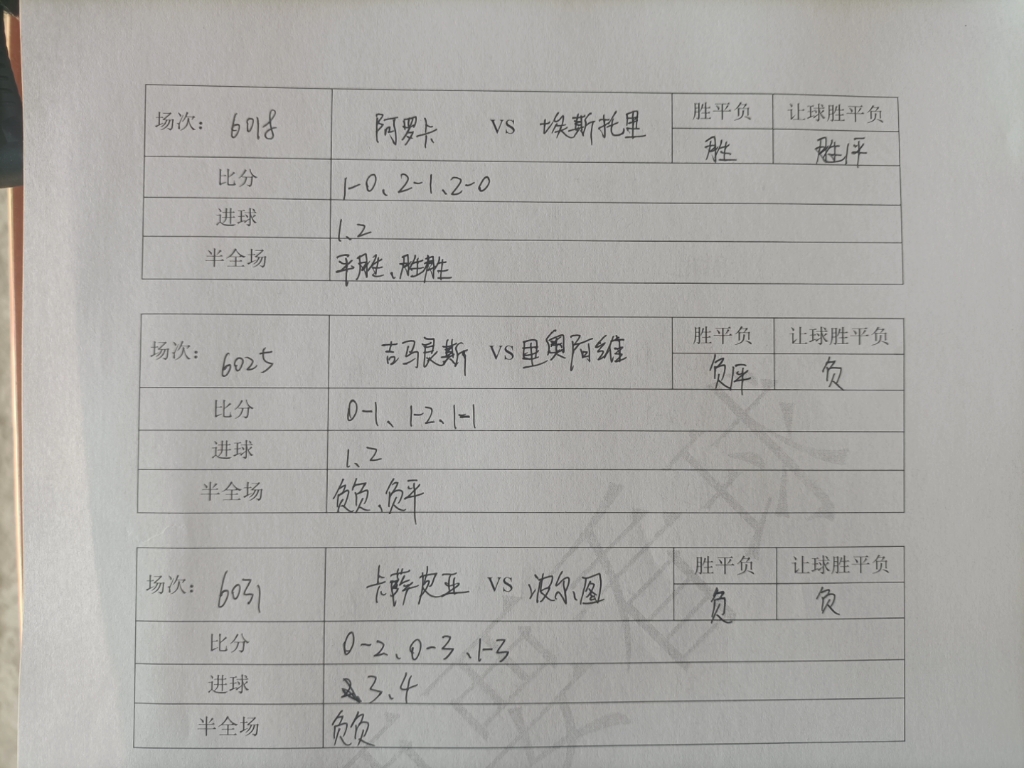 场次: 6018 阿罗卡 VS 埃斯托里 胜平负 让球胜平负
胜 胜平
比分 1-0、2-1、2-0
进球 1、2
半全场 平胜、胜胜
场次: 6025 吉马良斯 VS 里奥阿维 胜平负 让球胜平负
负平 负
比分 0-1、1-2、1-1
进球 1、2
半全场 负负、负平
场次: 6031 卡萨皮亚 VS 波尔图 胜平负 让球胜平负
负 负
比分 0-2、0-3、1-3
进球 3、4
半全场 负负
要看球